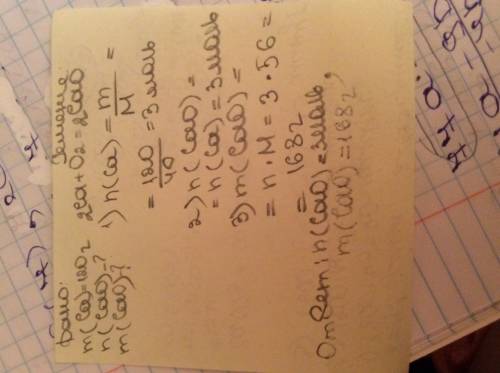 Дано:
m(Ca)=120г
n(CaO)-?
m(CaO)-?
Решение:
2Ca+O2=2CaO
1) n(Ca) = m/M =
= 120/40 = 3 моль
2) n(CaO) =
= n(Ca) = 3 моль
3) m(CaO) =
= n·M = 3·56 =
= 168г
Ответ: n(CaO)=3моль,
m(CaO)=168г,